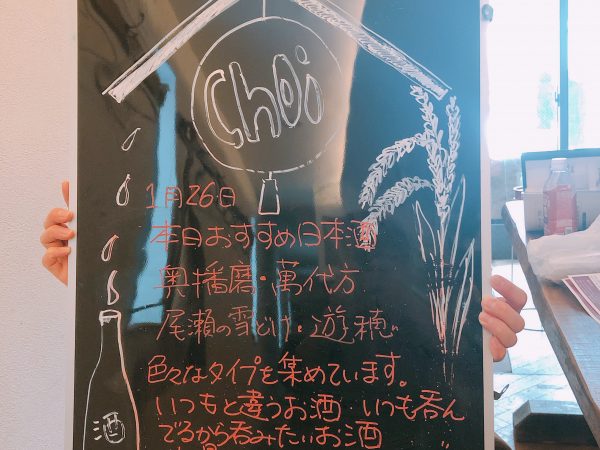 Choi
1月26日
本日おすすめ日本酒
奥播磨・萬代方
尾瀬の雪どけ・遊穂
色々なタイプを集めています。
いつもと違うお酒 いつも呑ん
でるから呑みたいお酒
酒